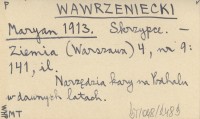 P
WAWRZENIECKI
Maryan 1913. Skrzypce. –
Ziemia (Warszawa) 4, nr 9:
141, il.
Narzędzia kary na Podhalu
w dawnych latach.
MT